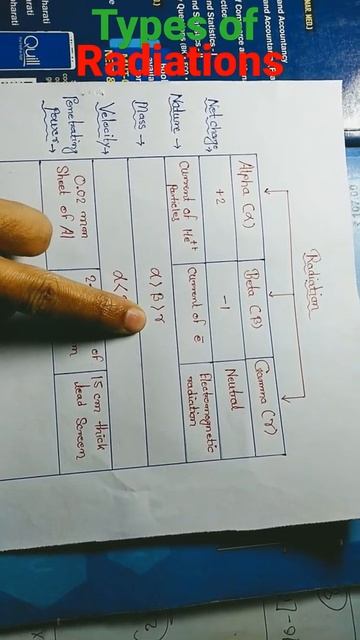 Types of
Radiations
Radiation
Alpha (α) Beta (β) Gamma (γ)
Net charge → +2 -1 Neutral
Nature → Current of He++ Particles Current of ē Electromagnetic radiation
Mass → α > β > γ
Velocity → α <
Penetrating Power → 0.02 mm Sheet of Al of 15 cm thick lead Screen
and Accountancy
Quill
bharati